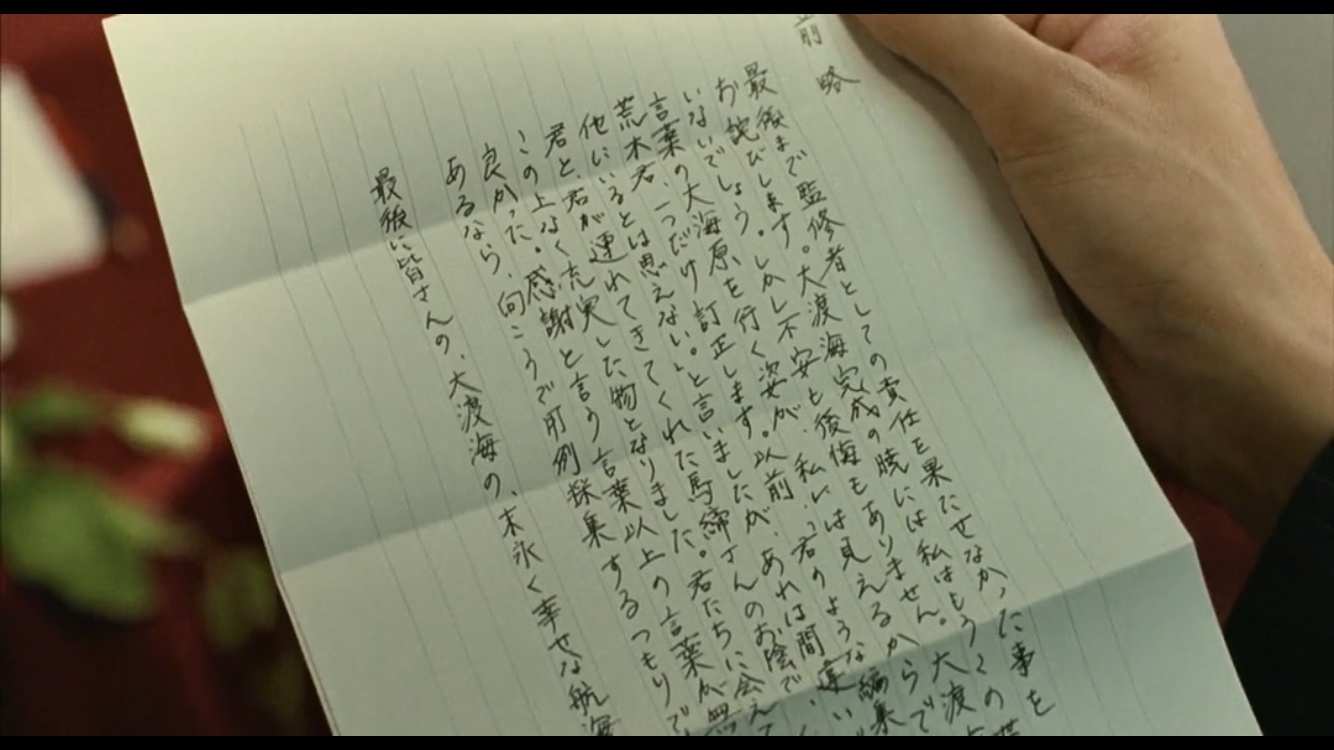 前略
最後まで監修者としての責任を果たせなかった事を
お詫びします。大渡海完成の暁には私はもうこの世
いないでしょう。しかし不安も後悔もありません。大渡
言葉の大海原を行く姿が、私には見えるからで
荒木君、一つだけ訂正します。以前、「君のような編集
他にいるとは思えない。」と言いましたが、あれは間違い
君と、君が連れてきてくれた馬締さんのお陰で、
この上なく充実した物となりました。君たちに会えて
良かった。感謝と言う言葉以上の言葉が無
あるなら、向こうで用例採集するつもりで
最後に皆さんの、大渡海の、末永く幸せな航海